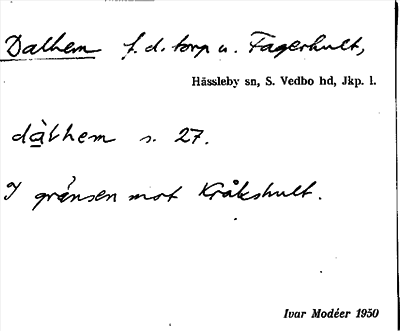 Dalhem f.d. torp u. Fagerhult,
Hässleby sn, S. Vedbo hd, Jkp. l.
dàlhem s. 27.
I gränsen mot Kråkshult.
Ivar Modéer 1950